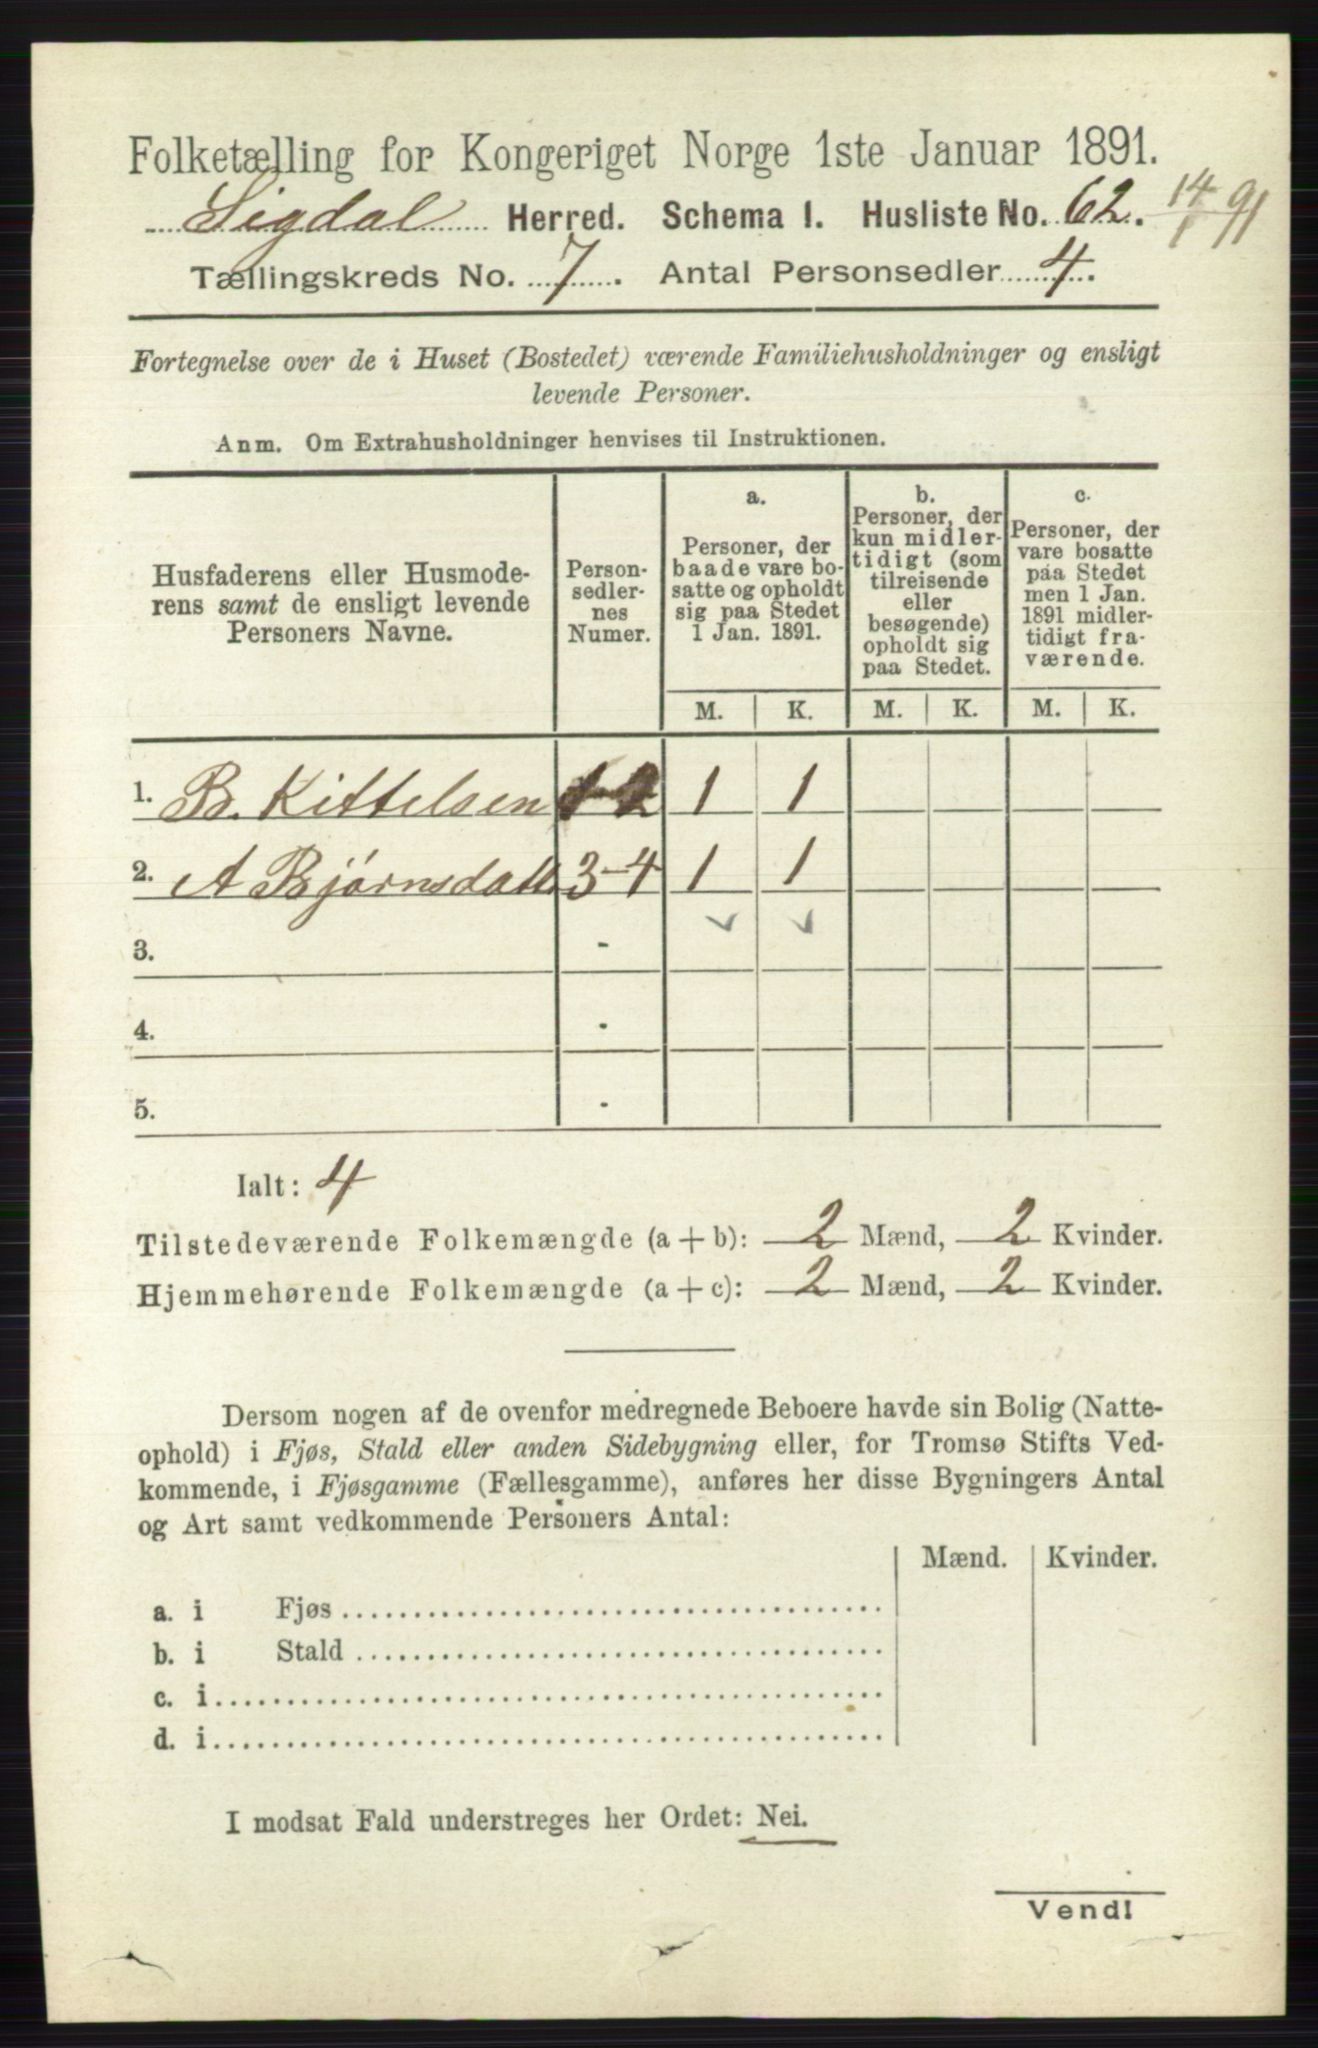 Folketælling for Kongeriget Norge 1ste Januar 1891.
Sigdal Herred. Schema 1. Husliste No. 62. 14/1 91
Tællingskreds No. 7. Antal Personsedler 4.
Fortegnelse over de i Huset (Bostedet) værende Familiehusholdninger og ensligt
levende Personer.
Anm. Om Extrahusholdninger henvises til Instruktionen.
Husfaderens eller Husmode-
rens samt de ensligt levende
Personers Navne.
Person-
sedler-
nes
Numer.
a.
Personer, der
baade vare bo-
satte og opholdt
sig paa Stedet
1 Jan. 1891.
b.
Personer, der
kun midler-
tidigt (som
tilreisende
eller
besøgende)
opholdt sig
paa Stedet.
c.
Personer, der
vare bosatte
paa Stedet
men 1 Jan.
1891 midler-
tidigt fra-
værende.
M. K. M. K. M. K.
1. B. Kittelsen 1-2 1 1
2. A Bjørnsdatt 3-4 1 1
3. -
4. -
5. -
Ialt: 4
Tilstedeværende Folkemængde (a + b): 2 Mænd, 2 Kvinder.
Hjemmehørende Folkemængde (a + c): 2 Mænd, 2 Kvinder.
Dersom nogen af de ovenfor medregnede Beboere havde sin Bolig (Natte-
ophold) i Fjøs, Stald eller anden Sidebygning eller, for Tromsø Stifts Ved-
kommende, i Fjøsgamme (Fællesgamme), anføres her disse Bygningers Antal
og Art samt vedkommende Personers Antal:
Mænd. Kvinder.
a. i Fjøs
b. i Stald
c. i
d. i
I modsat Fald understreges her Ordet: Nei.
Vend!